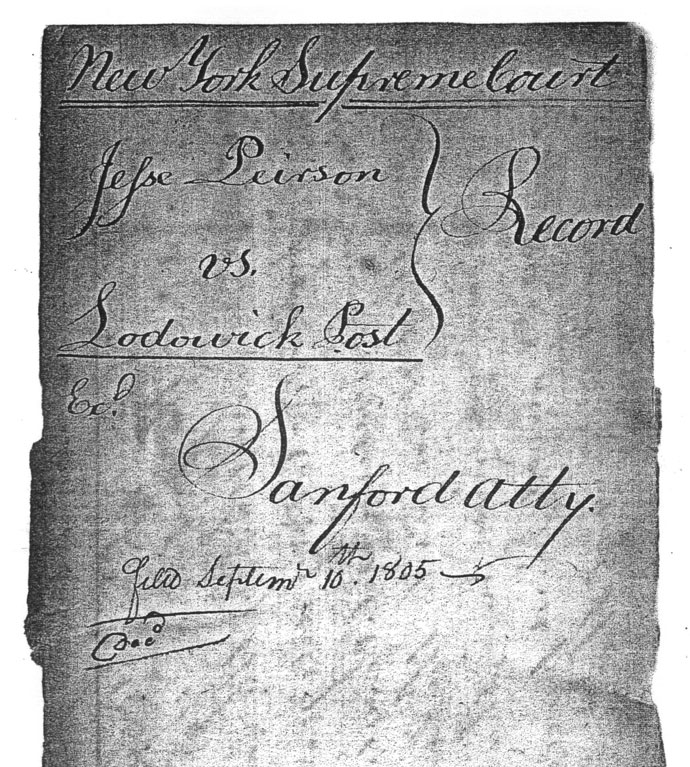 New York Supreme Court
Jesse Peirson
Record
vs.
Lodowick Post
Sanford Atty.
filed Septemr. 10th. 1805